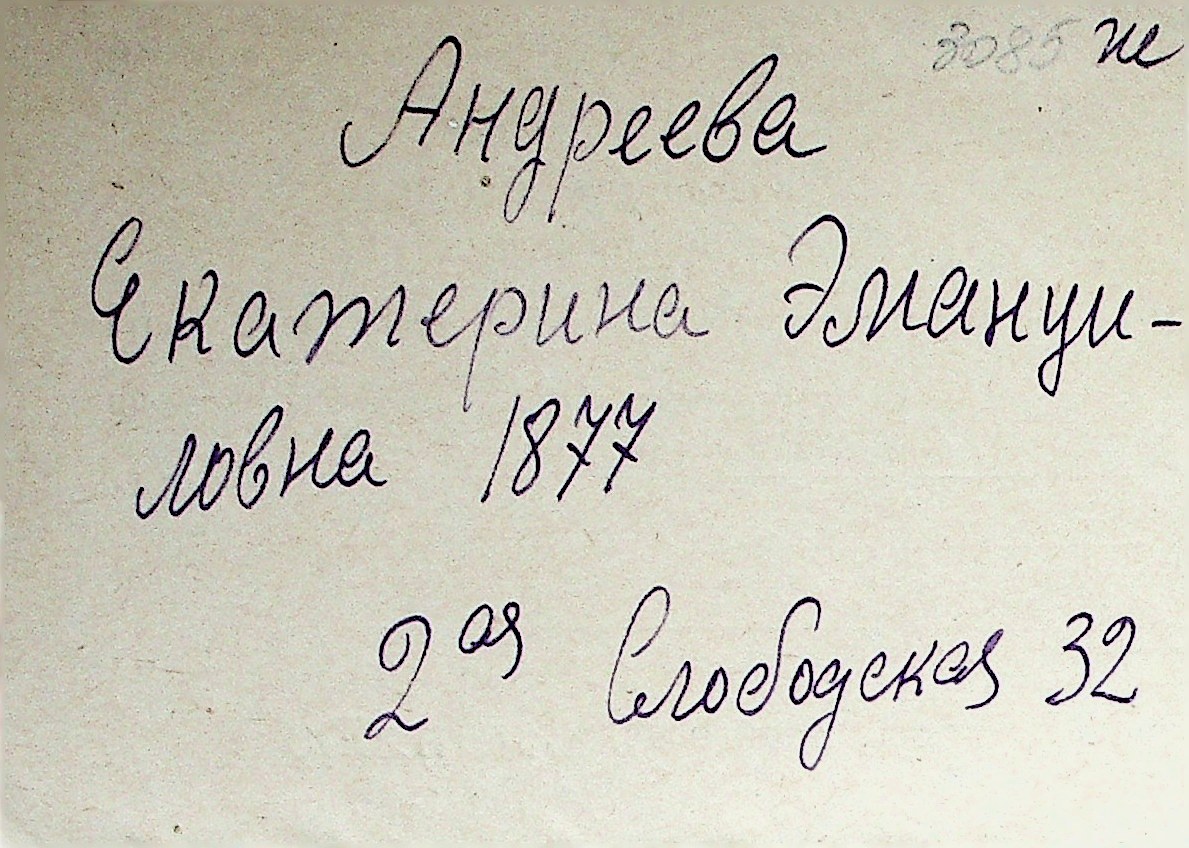 3085 ж
Андреева
Екатерина Эмануи-
ловна 1877
2ая Слободская 32